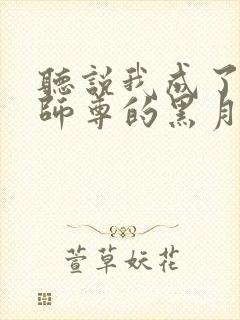 聽説我成了
師尊的黑月
萱草妖花